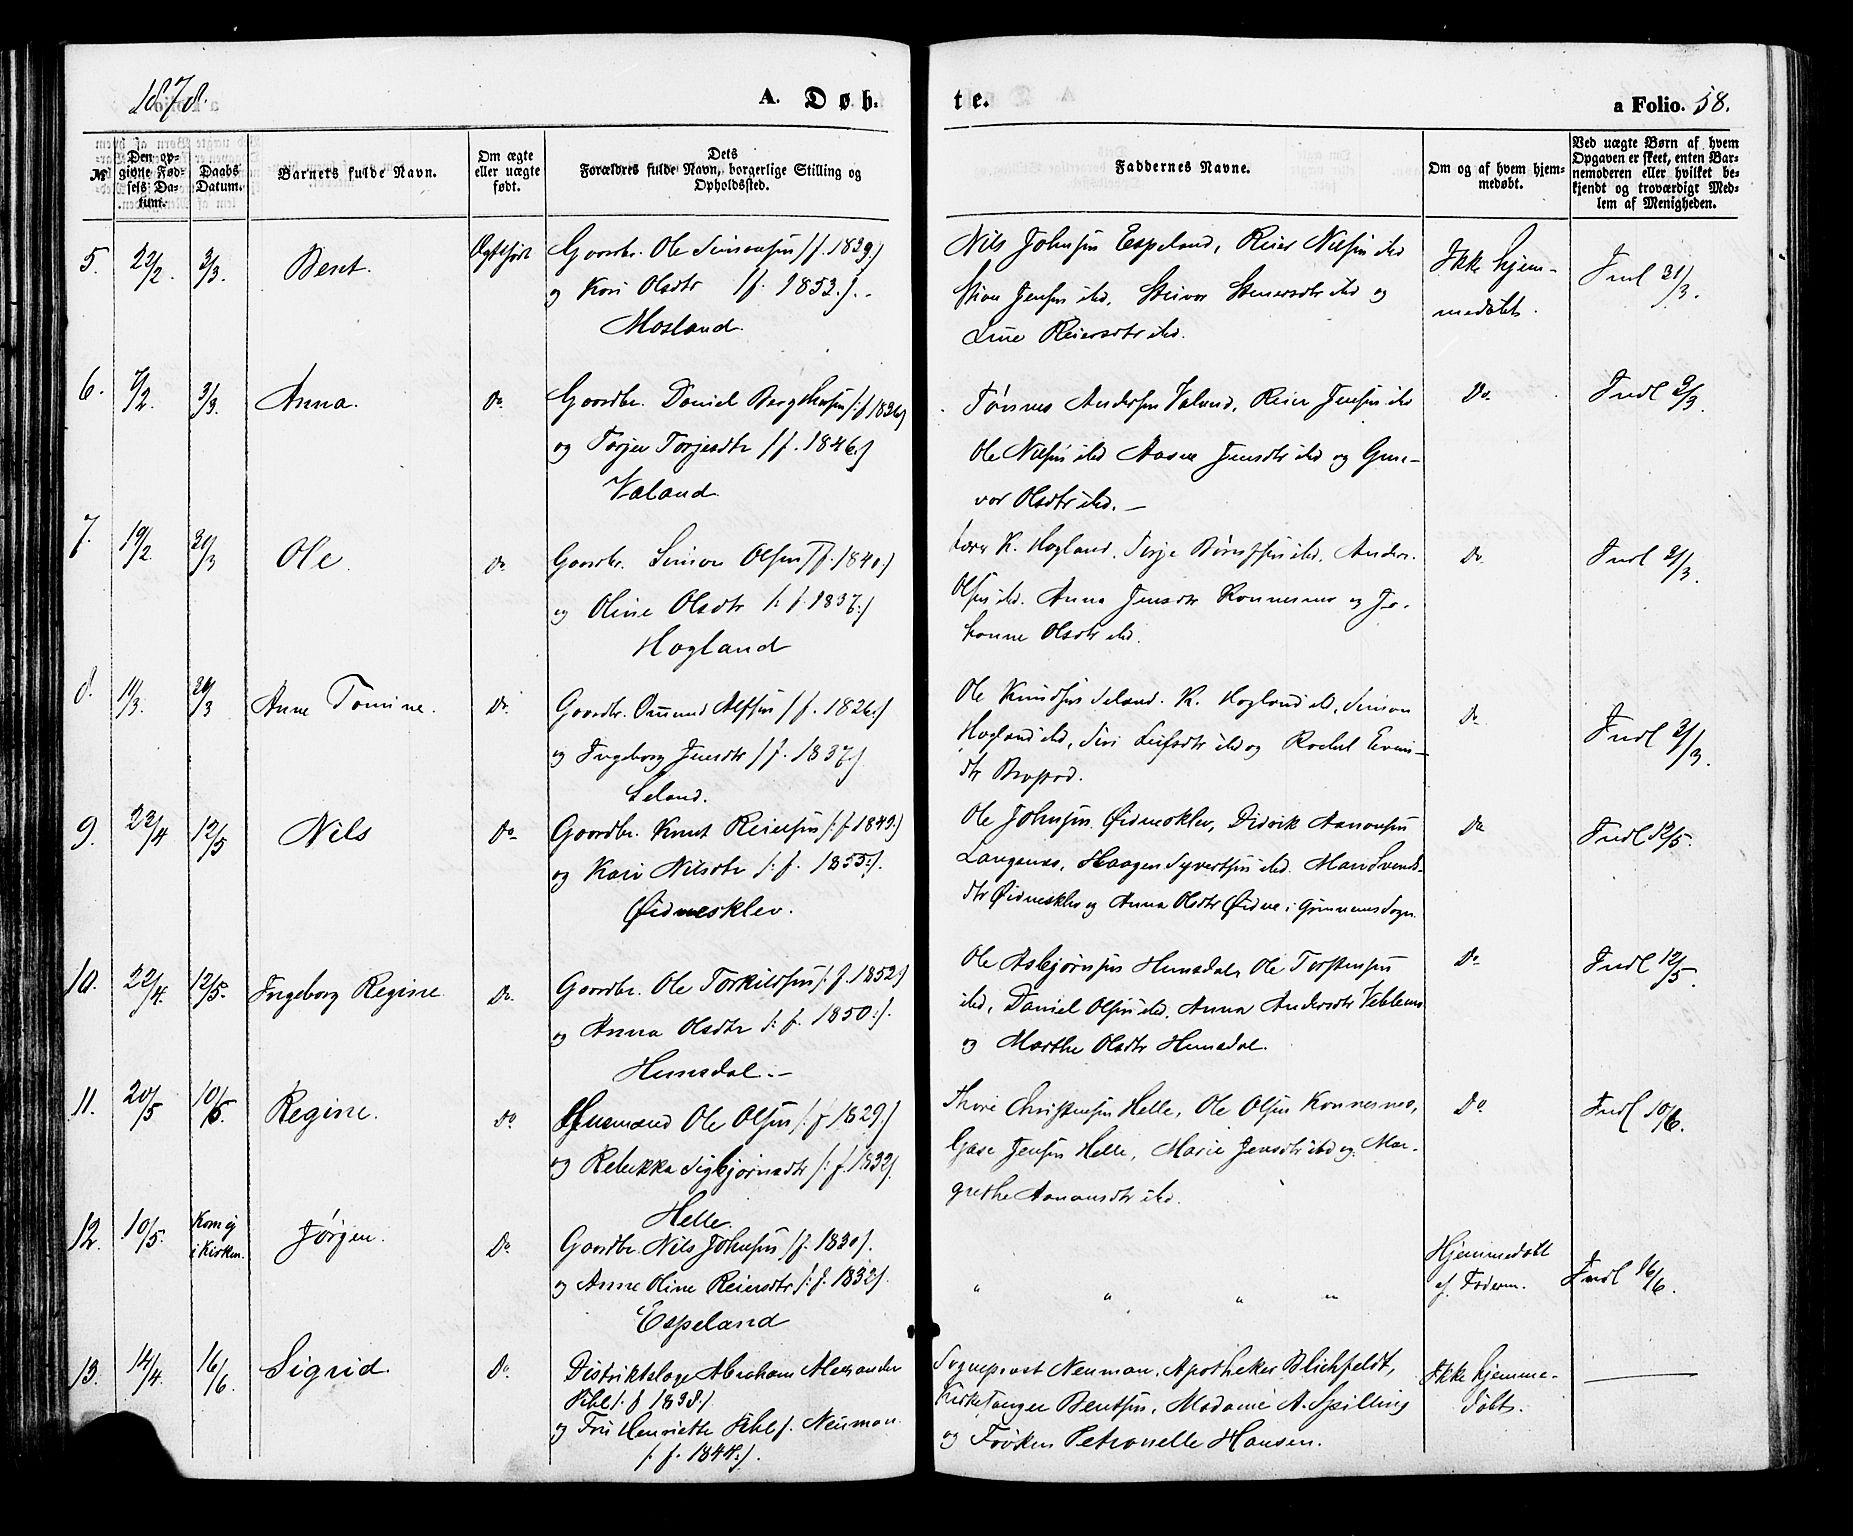 1878.
A. Døb-
te.
a Folio. 58.
№
Den op-
givne Fød-
sels Da-
tum.
Daabs
Datum.
Barnets fulde Navn.
Om ægte
eller uægte
født.
Dets
Forældres fulde Navn, borgerlige Stilling og
Opholdssted.
Faddernes Navne.
Om og af hvem hjem-
medøbt.
Ved uægte Børn af hvem
Opgaven er skeet, enten Bar-
nemoderen eller hvilket be-
kjendt og troværdigt Med-
lem af Menigheden.
5. 22/2. 3/3. Bent. Ægtefødt
Gaardbr. Ole Simonsen /f. 1839./
og Kari Olsdtr /f. 1853./.-
Mosland.
Nils Johnsen Espeland, Reier Nilsen ibd
Jensen ibd, Stenersdtr ibd og
Line Reiersdtr ibd.
Ikke hjem-
medøbt.
Indl 31/3.
6. 7/2. 3/3. Anna. Do
Gaardbr. Daniel Bergthorsen /: f 1836/
og Torjer Torjesdtr /f. 1846:/
Valand.
Tønnes Andersen Valand, Reier Jensen ibd
Ole Nilsen ibd Aasne Jensdtr ibd og Gun-
vor Olsdtr ibd.-
Do
Indl 3/3.
7. 19/2 31/3 Ole. Do
Gaardbr. Simon Olsen /f. 1840./
og Oline Olsdtr /: f. 1837./
Hogland
K. Hogland, Terje ibd, Anders
Olsen ibd. Anna Jensdtr Konnesmo og Jo-
hanne Olsdtr ibd.
Do.
Indl 31/3.
8. 11/3. 31/3 Anne Tomine. Do.
Gaardbr. Omund Alfsen /f. 1826./
og Ingeborg Jensdtr /f. 1837./
Seland.
Ole Knudsen Seland. K. Hogland ibd, Simon
Hogland ibd, Siri Leifsdtr ibd og Rachel Even-
dtr
Do
Indl 31/3.
9. 22/4 12/5 Nils Do
Gaardbr. Knut Reiersen /: f. 1849./
og Kari Nilsdtr /: f. 1855:/.
Øidneskler.
Ole Johnsen Øidnesklev, Didrik Aanonsen
Langenes, Haagen Syvertsen ibd. Mari Svends-
dtr Øidnesklev og Anna Olsdtr Øidne i Grimnes Sogn
Do
Indl 12/5.
10. 22/4. 12/5. Ingeborg Regine. Do.
Gaardbr. Ole Torkildsen /: f. 1852:/
og Anna Olsdtr /: f. 1850:/.
Hunsdal.-
Ole Asbjørnsen Hunsdal, Ole Torstensen
ibd, Daniel Olsen ibd. Anna Andersdtr
og Marthe Olsdtr Hunsdal.
Do
Indl 12/5.
11. 20/5 10/6. Regine. Do
Husmand Ole Olsen /: f 1829./
og Rebekka Sigbjørnsdtr /: f. 1832/.
Helle.
Thore Christensen Helle, Ole Olsen Konnesmo,
Jensen Helle, Marie Jensdtr ibd og Mar-
grethe Aanonsdtr ibd.
Do
Indl 10/6.
12. 10/5. Kom ej
i Kirken. Jørgen. Do
Gaardbr. Nils Johnsen /f. 1830/.
og Anne Oline Reiersdtr /: f. 1832/.
Espeland
" " " "
Hjemmedøbt
af Faderen.
Indl 16/6.
13. 14/4. 16/6. Sigrid. Do
Distriktslæge Abraham Alexander
Kihl /. f 1838./
og Fru Henriette Kihl f. Neuman.
/: f. 1844:/.
Sogneprest Neuman, Apotheker Blichfeldt,
Kirkesanger Bentsen, Madame A. Spilling
og Frøken Petronelle Hansen.
Ikke hjemme-
døbt.